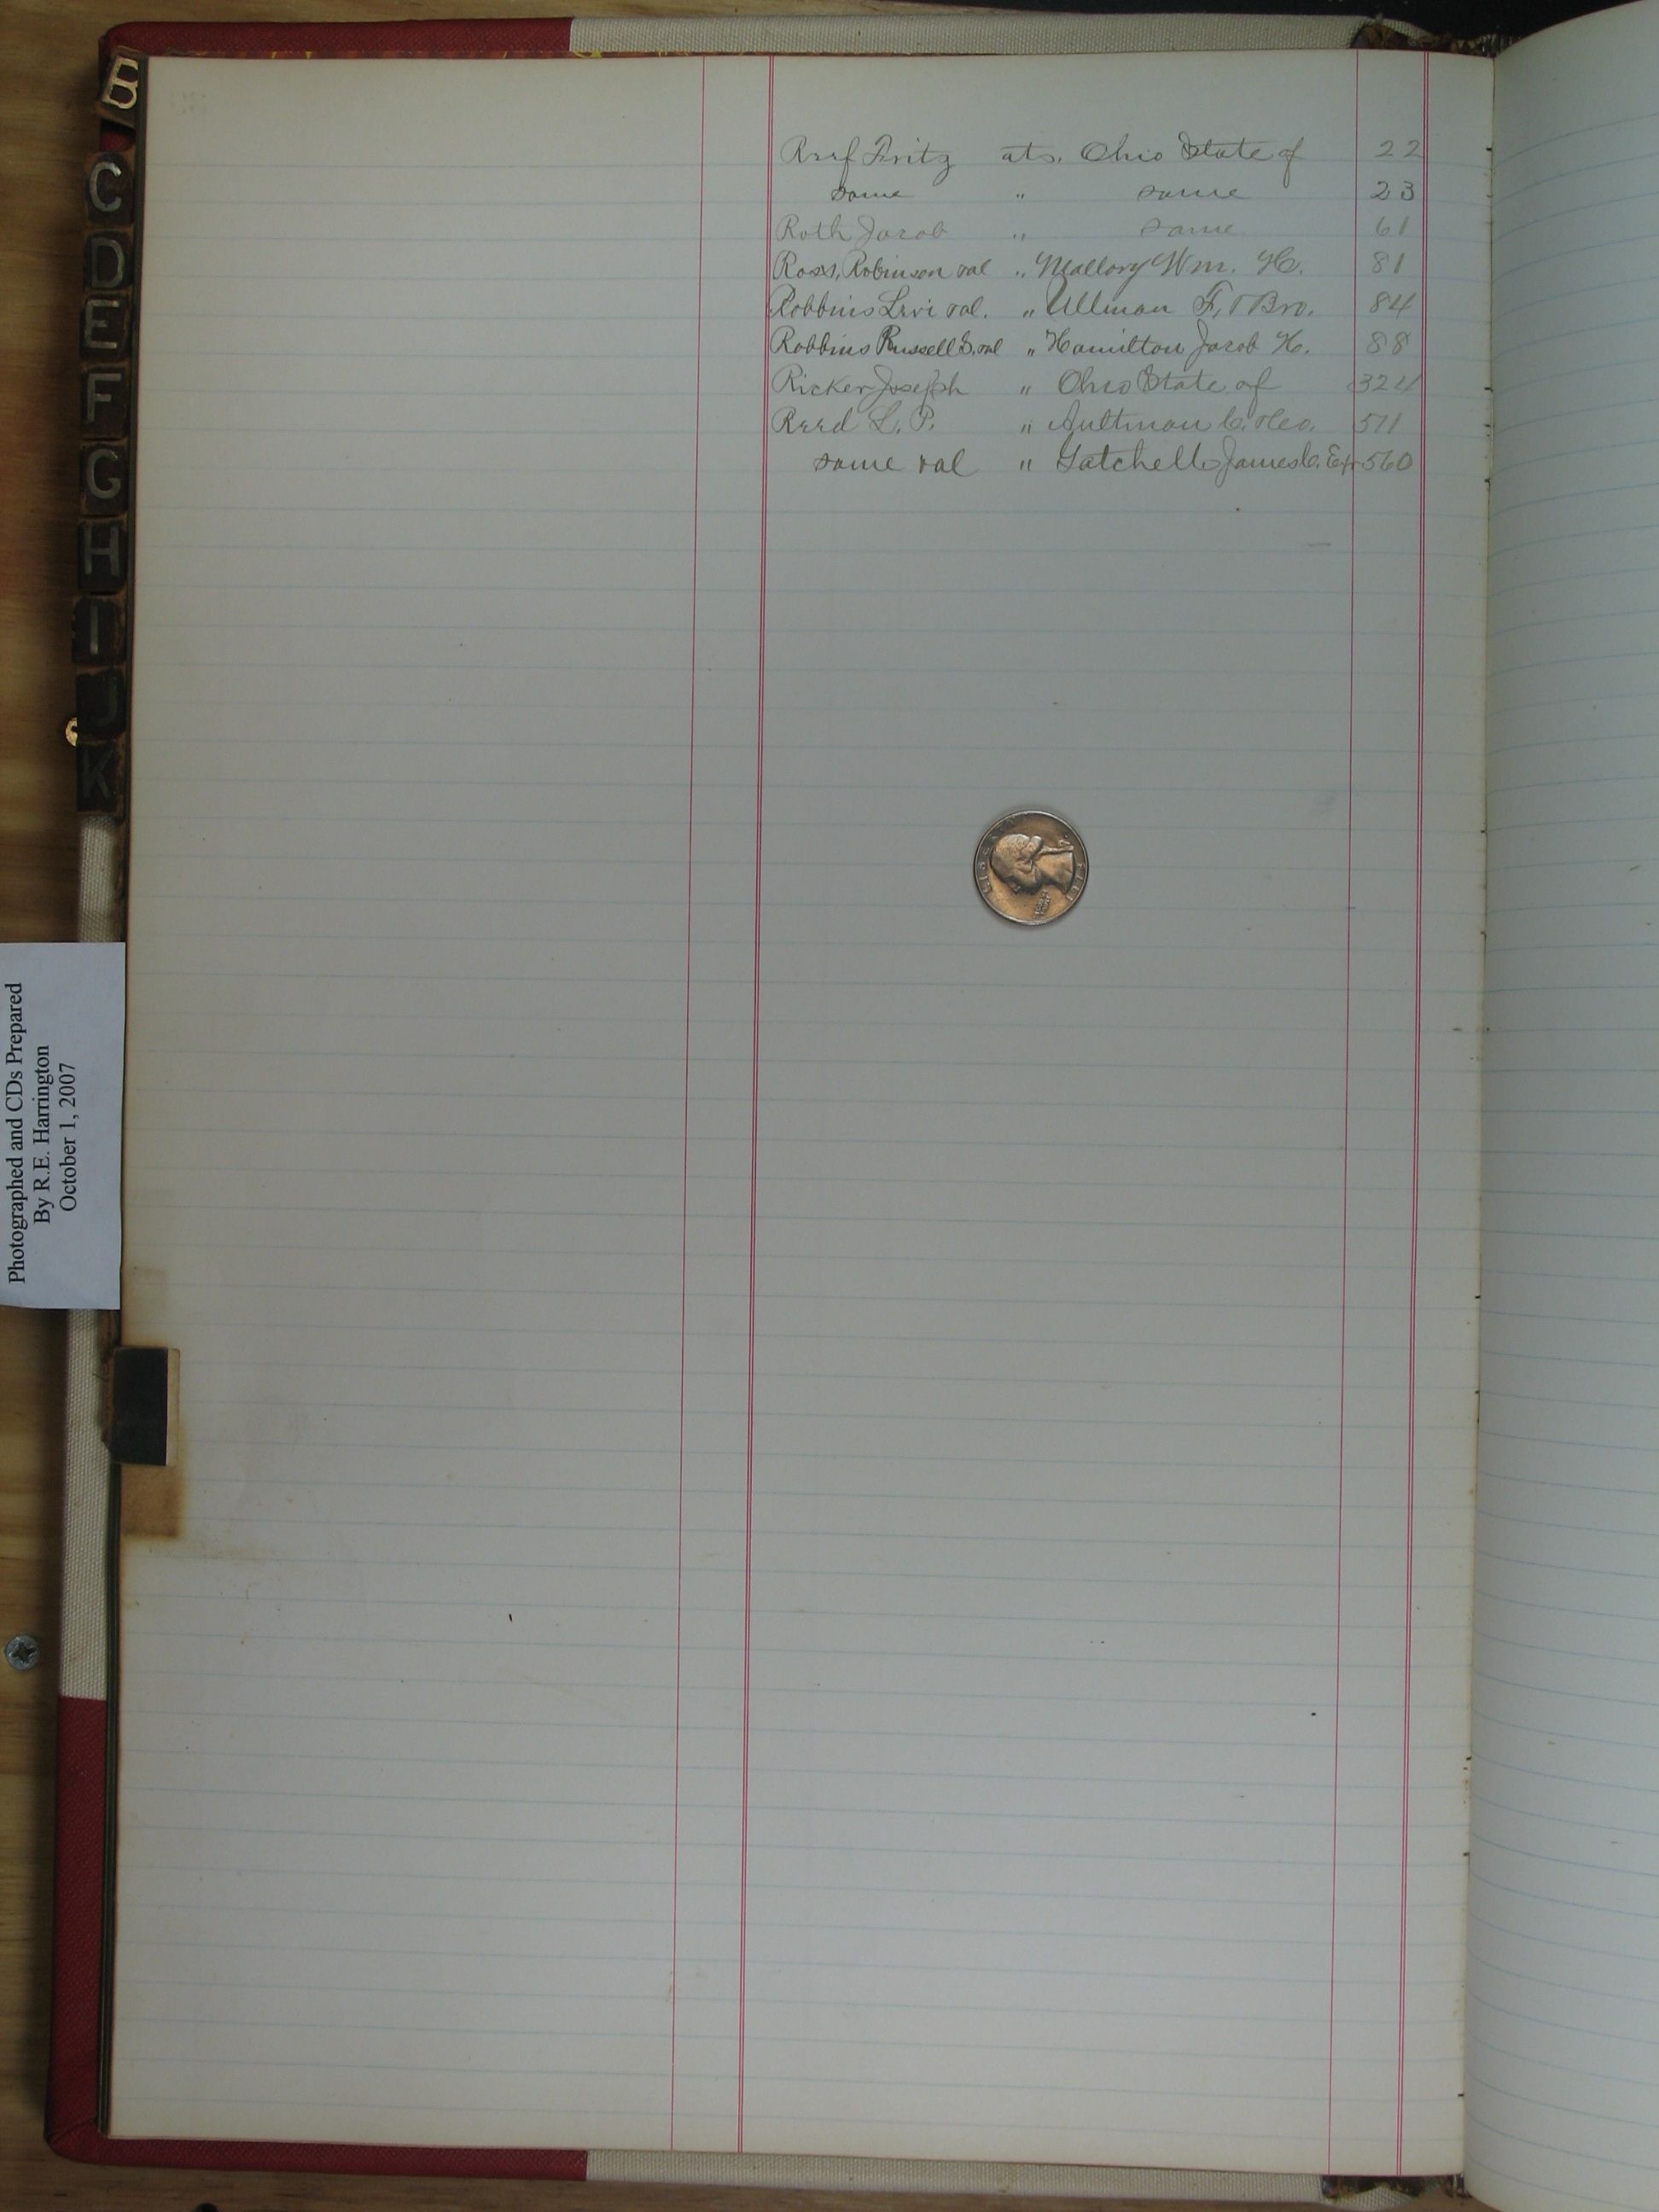 B
C
D
E
F
G
H
I
J
K
Reef Fritz ats. Ohio State of 22
same " same 23
Roth Jacob " same 61
Ross, Robinson et al " Mallory Wm. H. 81
Robbins Levi et al. " Ullman F, & Bro. 84
Robbins Russell S. et al " Hamilton Jacob H. 88
Ricker Joseph " Ohio State of 324
Reed L. P. " Aultman C. & Co. 511
same et al " Gatchell James C. Exr 560
LIBERTY
Photographed and CDs Prepared
By R.E. Harrington
October 1, 2007